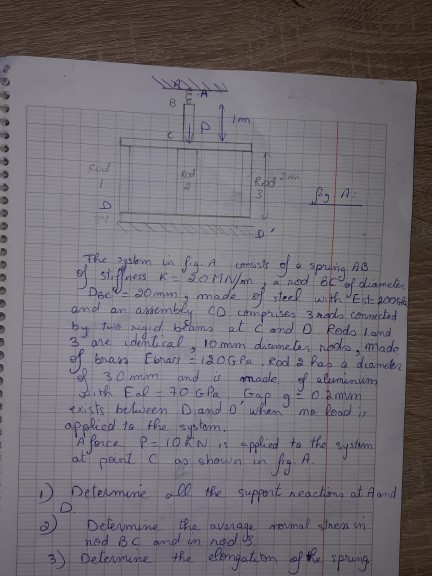 A
B
1m
C
P
Rod
1
Rod
2
Rod
3
2m
fig A:
D
gap
D'
The system in fig. A consists of a spring AB
of stiffness K = 20 MN/m, a rod BC of diameter
DBC = 20mm, made of steel with Est = 200GPa
and an assembly CD comprises 3 rods connected
by two rigid beams at C and D. Rods 1 and
3 are identical, 10 mm diameter rods, made
of brass Ebrass = 120 GPa. Rod 2 has a diameter
of 30 mm and is made of aluminum
with Eal = 70 GPa. Gap g = 0.2mm
exists between D and D' when no load is
applied to the system.
A force P = 10 KN is applied to the system
at point C as shown in fig. A.
1) Determine all the support reactions at A and
D.
2) Determine the average normal stress in
rod BC and in rod 3.
3) Determine the elongation of the spring